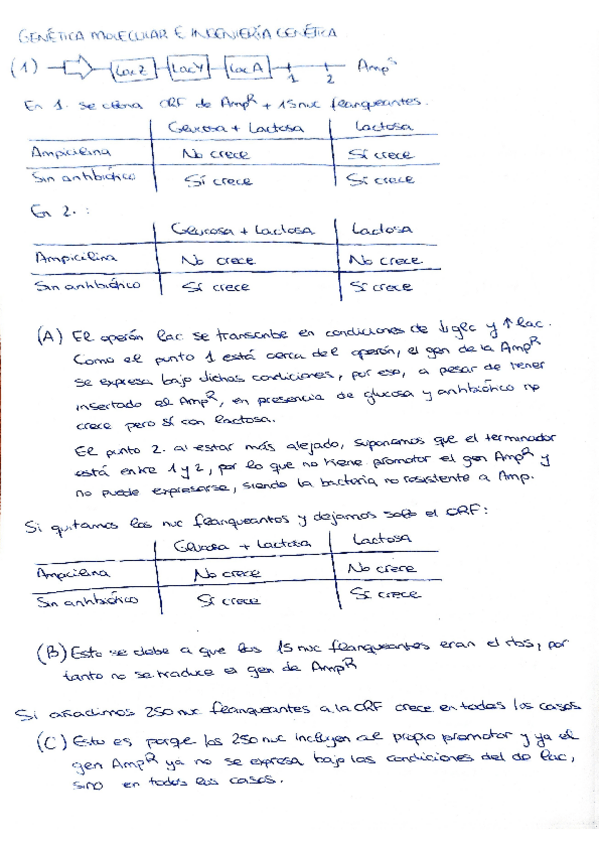 GENÉTICA MOLECULAR E INGENIERÍA GENÉTICA
(1) LacZ LacY LacA 1 2 Amp^S
En 1. se clona ORF de Amp^R + 15 nuc flanqueantes.
Glucosa + Lactosa Lactosa
Ampicilina No crece Sí crece
Sin antibiótico Sí crece Sí crece
En 2. :
Glucosa + Lactosa Lactosa
Ampicilina No crece No crece
Sin antibiótico Sí crece Sí crece
(A) El operón lac se transcribe en condiciones de ↓glc y ↑lac.
Como el punto 1 está cerca del operón, el gen de la Amp^R
se expresa bajo dichas condiciones, por eso, a pesar de tener
insertado el Amp^R, en presencia de glucosa y antibiótico no
crece pero sí con lactosa.
El punto 2. al estar más alejado, suponemos que el terminador
está entre 1 y 2, por lo que no tiene promotor el gen Amp^R y
no puede expresarse, siendo la bacteria no resistente a Amp.
Si quitamos los nuc flanqueantes y dejamos solo el ORF:
Glucosa + Lactosa Lactosa
Ampicilina No crece No crece
Sin antibiótico Sí crece Sí crece
(B) Esto se debe a que los 15 nuc flanqueantes eran el rbs, por
tanto no se traduce el gen de Amp^R
Si añadimos 250 nuc flanqueantes a la ORF crece en todos los casos
(C) Esto es porqe los 250 nuc incluyen al propio promotor y ya el
gen Amp^R ya no se expresa bajo las condiciones del lac,
sino en todos los casos.